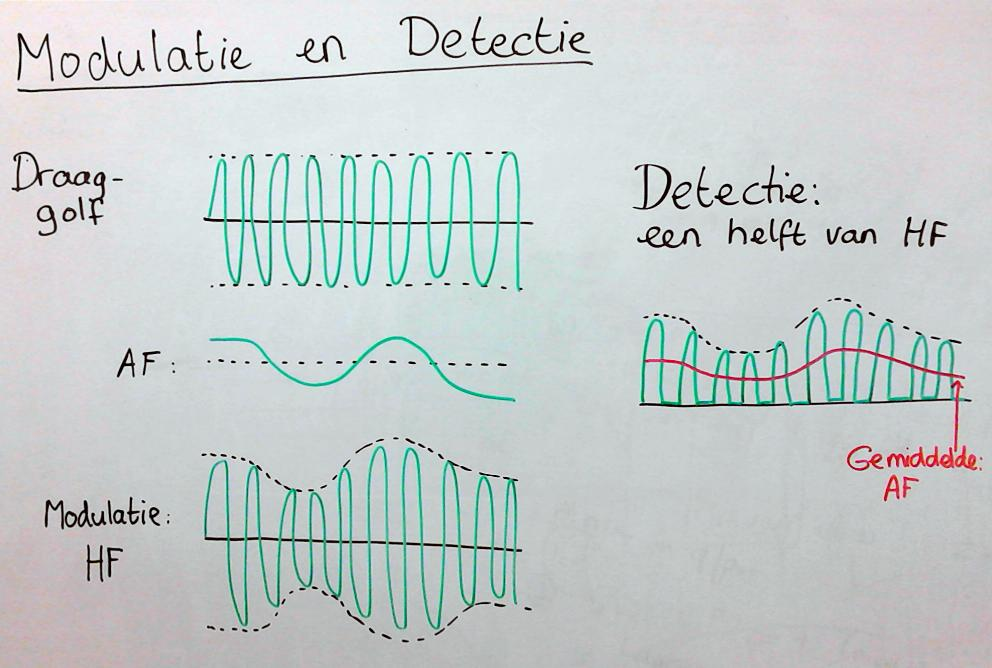 Modulatie en Detectie
Draag-
golf
AF:
Modulatie:
HF
Detectie:
een helft van HF
Gemiddelde:
AF